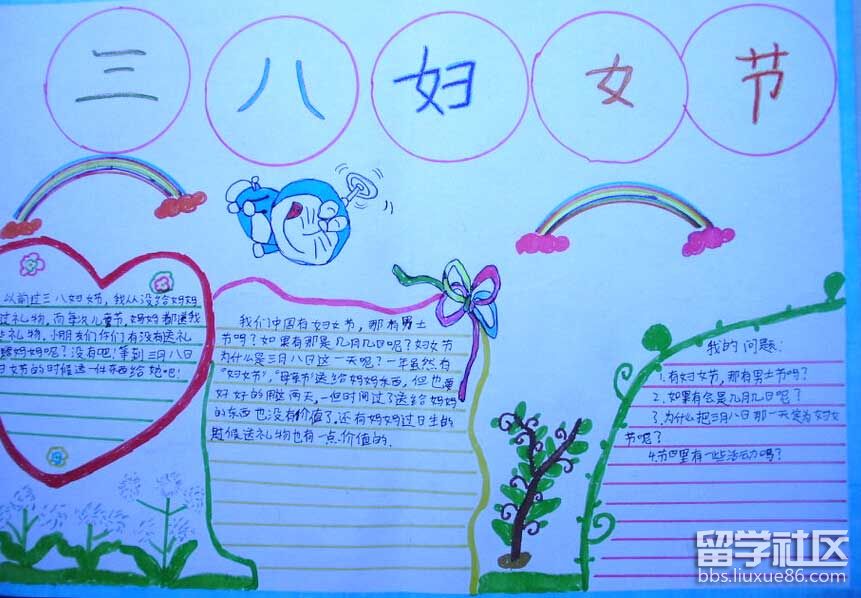 三八妇女节
以前过三八妇女节,我从没给妈妈
过礼物,而每次儿童节,妈妈都送我
礼物,小朋友们你们有没有送礼
妈妈呢?没有吧!等到三月八日
妇女节的时候送一件东西给她吧!
我们中国有妇女节,那有男士
节吗?如果有那是几月几日呢?妇女节
为什么是三月八日这一天呢?一年虽然有
"妇女节","母亲节"送给妈妈东西,但也要
好好的用这两天,一但时间过了送给妈妈
的东西也没有价值了,还有妈妈过日生的
时候送礼物也有一点价值的.
我的问题:
1.有妇女节,那有男士节吗?
2.如果有会是几月几日呢?
3.为什么把三月八日那一天定为妇女
节呢?
4.节日里有一些活动吗?
留学社区
bbs.liuxue86.com